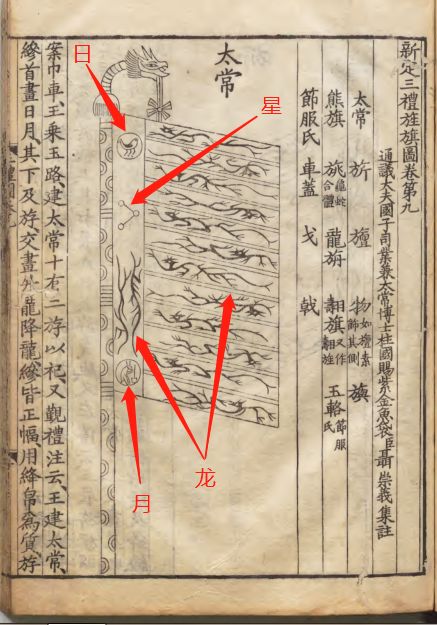 新定三禮旌旗圖卷第九
通議大夫國子司業兼太常博士柱國賜紫金魚袋臣聶崇義集註
太常 旂 旜 物 如旜素飾其側 旟
熊旗 旐 龜蛇合體 龍 玉輅 節服氏
節服氏 車蓋 戈 戟
太常
案巾車王乘玉路建太常十有二斿以祀又覲禮注云王建太常
縿首畫日月其下及斿交畫升龍降龍縿皆正幅用絳帛為質斿
日
星
龙
月